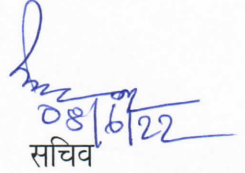 08/6/22
सचिव